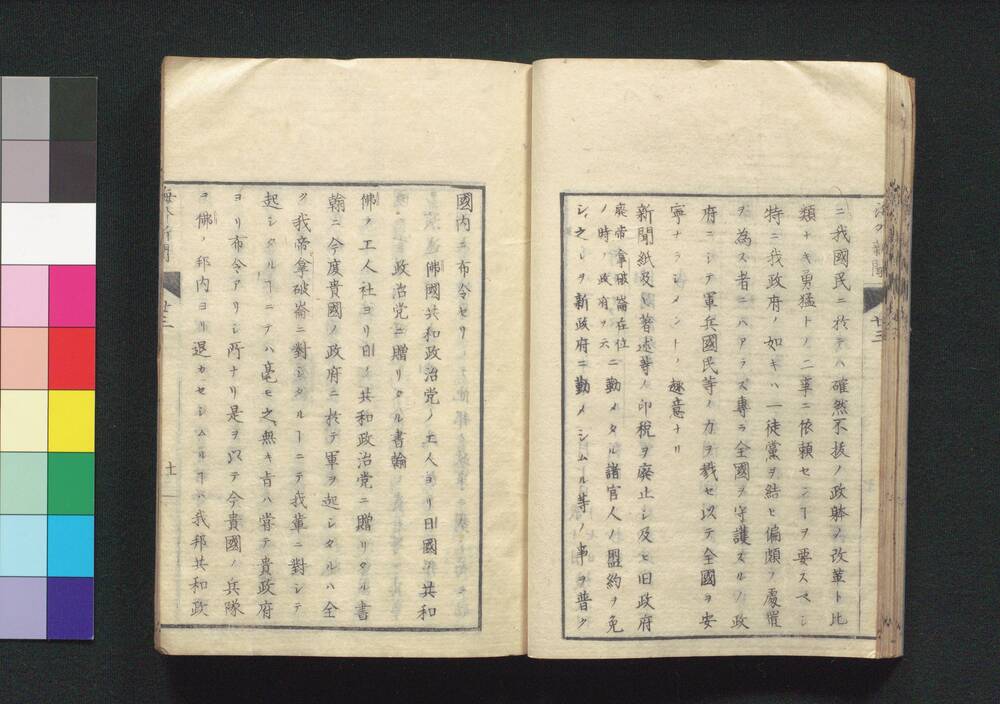 ニ我國民ニ於テハ確然不抜ノ政躰ノ改革ト比
類ナキ勇猛トノ二事ニ依頼センヿヲ要スベシ
特ニ我政府ノ如キハ一徒黨ヲ結ヒ偏頗ノ處置
ヲ為ス者ニハアラス專ラ全國ヲ守護スルノ政
府ニシテ軍兵國民等ノ力ヲ戮セ以テ全國ヲ安
寧ナラシメントノ趣意ナリ
新聞紙及ヒ著述等ノ印税ヲ廢止シ及ヒ旧政府
廃帝拿破崙在位ノ時ノ政府ヲ云
ニ勤メタル諸官人ノ盟約ヲ免
シ之レヲ新政府ニ勤メシムル等ノ事ヲ普ク
海外新聞
廿三
國内ニ布令セリ
佛國共和政治党ノ工人ヨリ日國ノ共和
政治党ニ贈リタル書翰
佛ノ工人社ヨリ日ノ共和政治党ニ贈リタル書
翰ニ今度貴國ノ政府ニ於テ軍ヲ起シタルハ全
ク我帝拿破崙ニ對シタルヿニテ我輩ニ對シテ
起シタルヿニテハ毫モ之無キ旨ハ嘗テ貴政府
ヨリ布令アリシ所ナリ是ヲ以テ今貴國ノ兵隊
ヲ佛ノ邦内ヨリ退カセシムルヿハ我邦共和政
海外新聞
廿三
十一